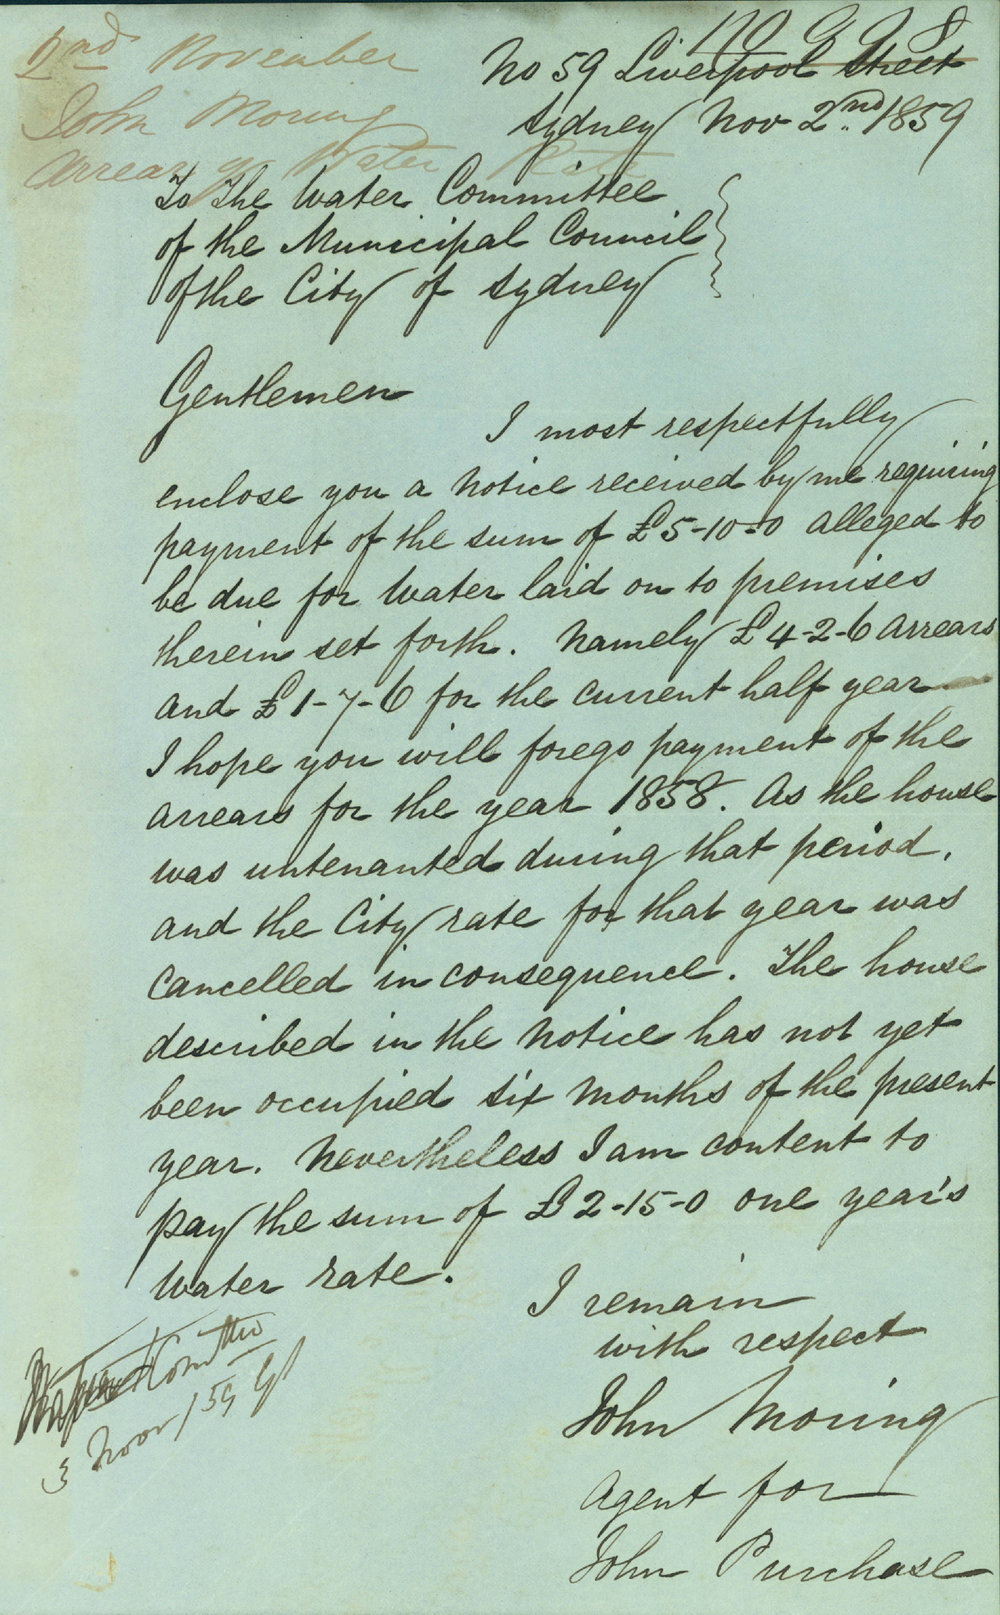 No 998
2nd November
John Moring
Arrears of Water Rate
No 59 Liverpool Street
Sydney Nov 2nd. 1859
To The Water Committee
of the Municipal Council
of the City of Sydney
Gentlemen
I most respectfully
enclose you a Notice received by me requiring
payment of the sum of £5-10-0 alleged to
be due for Water laid on to premises
therein set forth. Namely £4-2-6 Arrears
and £1-7-6 for the current half year
I hope you will forego payment of the
arrears for the year 1858. As the house
was untenanted during that period.
and the City rate for that year was
cancelled in consequence. The house
described in the Notice has not yet
been occupied six Months of the present
year. Nevertheless I am content to
pay the sum of £2-15-0 one year's
Water rate.
I remain
with respect
John Moring
Agent for
John Purchase
Committee
3 Novr/59